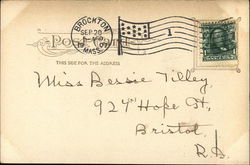 BROCKTON
SEP 20
MASS.
1
THIS SIDE FOR THE ADDRESS
Miss Bessie Tilley,
924 Hope St,
Bristol,
R.I.